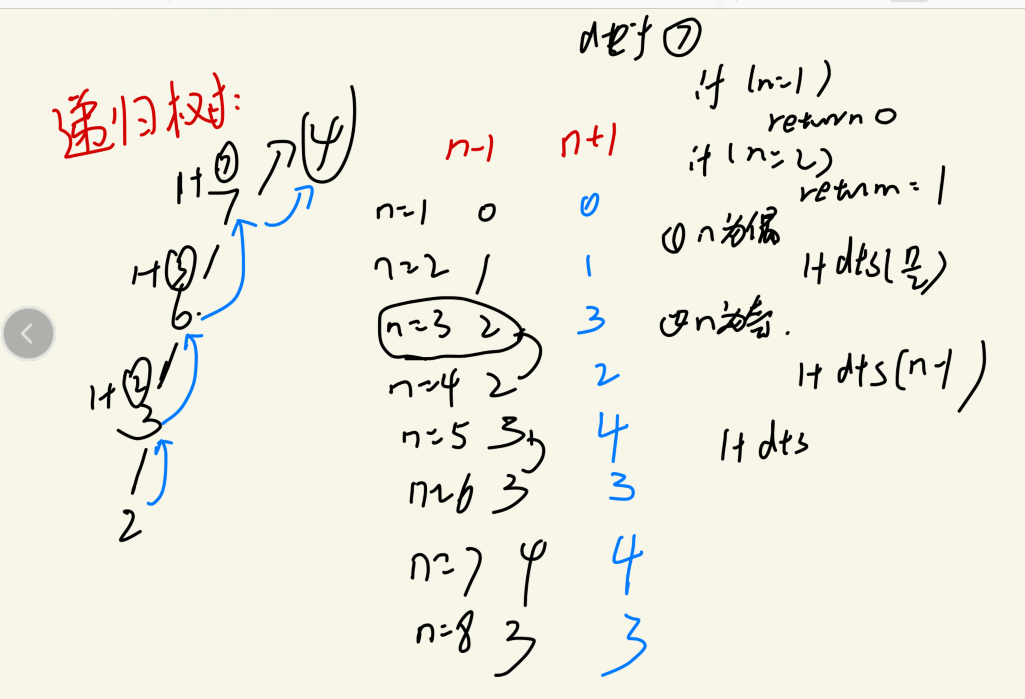 递归树:
1+③
7 → 4
1+③
6
1+②
3
2
n-1 n+1
n=1 0 0
n=2 1 1
n=3 2 3
n=4 2 2
n=5 3 4
n=6 3 3
n=7 4 4
n=8 3 3
if (n=1)
return 0
if (n=2)
return = 1
① n为偶
1+ dts(n/2)
② n为奇.
1+ dts(n-1)
1+ dts